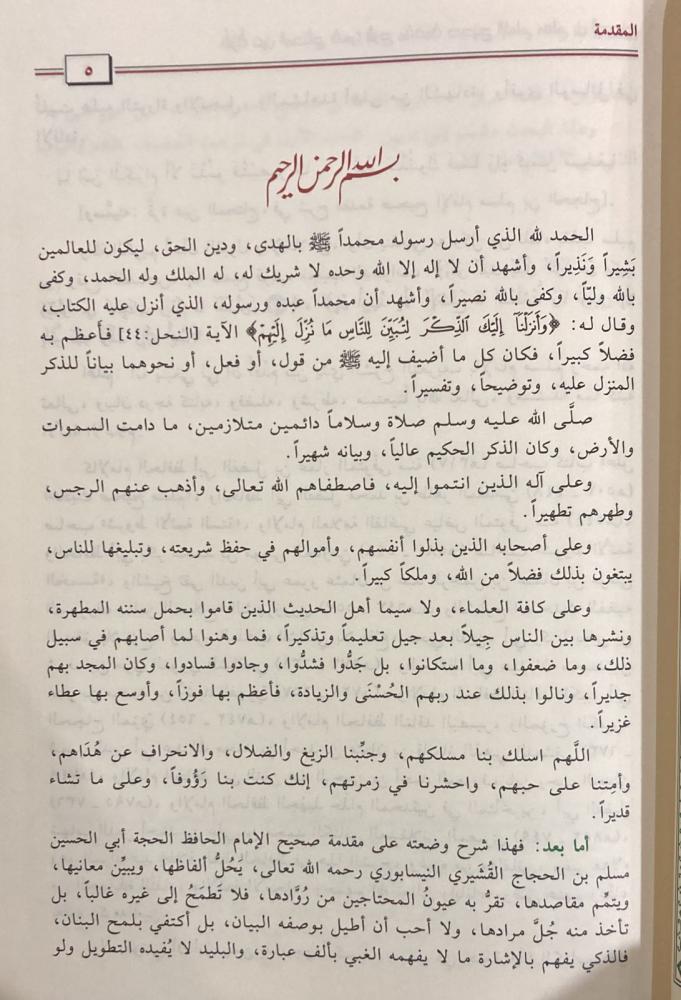 المقدمة
٥
بسم الله الرحمن الرحيم
الحمد لله الذي أرسل رسوله محمداً ﷺ بالهدى، ودين الحق، ليكون للعالمين
بَشِيراً وَنَذِيراً، وأشهد أن لا إله إلا الله وحده لا شريك له، له الملك وله الحمد، وكفى
بالله وليّاً، وكفى بالله نصيراً، وأشهد أن محمداً عبده ورسوله، الذي أنزل عليه الكتاب،
وقال له: ﴿وَأَنزَلْنَآ إِلَيْكَ ٱلذِّكْرَ لِتُبَيِّنَ لِلنَّاسِ مَا نُزِّلَ إِلَيْهِمْ﴾ الآية [النحل:٤٤] فأعظم به
فضلاً كبيراً، فكان كل ما أضيف إليه ﷺ من قول، أو فعل، أو نحوهما بياناً للذكر
المنزل عليه، وتوضيحاً، وتفسيراً.
صلَّى الله عليه وسلم صلاة وسلاماً دائمين متلازمين، ما دامت السموات
والأرض، وكان الذكر الحكيم عالياً، وبيانه شهيراً.
وعلى آله الذين انتموا إليه، فاصطفاهم الله تعالى، وأذهب عنهم الرجس،
وطهرهم تطهيراً.
وعلى أصحابه الذين بذلوا أنفسهم، وأموالهم في حفظ شريعته، وتبليغها للناس،
يبتغون بذلك فضلاً من الله، وملكاً كبيراً.
وعلى كافة العلماء، ولا سيما أهل الحديث الذين قاموا بحمل سننه المطهرة،
ونشرها بين الناس جِيلاً بعد جيل تعليماً وتذكيراً، فما وهنوا لما أصابهم في سبيل
ذلك، وما ضعفوا، وما استكانوا، بل جَدُّوا فشدُّوا، وجادوا فسادوا، وكان المجد بهم
جديراً، ونالوا بذلك عند ربهم الحُسْنَى والزيادة، فأعظم بها فوزاً، وأوسع بها عطاء
غزيراً.
اللَّهم اسلك بنا مسلكهم، وجنِّبنا الزيغ والضلال، والانحراف عن هُدَاهم،
وأمِتنا على حبهم، واحشرنا في زمرتهم، إنك كنت بنا رَؤُوفاً، وعلى ما تشاء
قديراً.
أما بعد: فهذا شرح وضعته على مقدمة صحيح الإمام الحافظ الحجة أبي الحسين
مسلم بن الحجاج القُشَيري النيسابوري رحمه الله تعالى، يَحُلُّ ألفاظها، ويبيِّن معانيها،
ويتمِّم مقاصدها، تقرُّ به عيونُ المحتاجين من رُوَّادها، فلا تَطمَحُ إلى غيره غالباً، بل
تأخذ منه جُلَّ مرادها، ولا أحب أن أطيل بوصفه البيان، بل أكتفي بلمح البنان،
فالذكي يفهم بالإشارة ما لا يفهمه الغبي بألف عبارة، والبليد لا يُفيده التطويل ولو